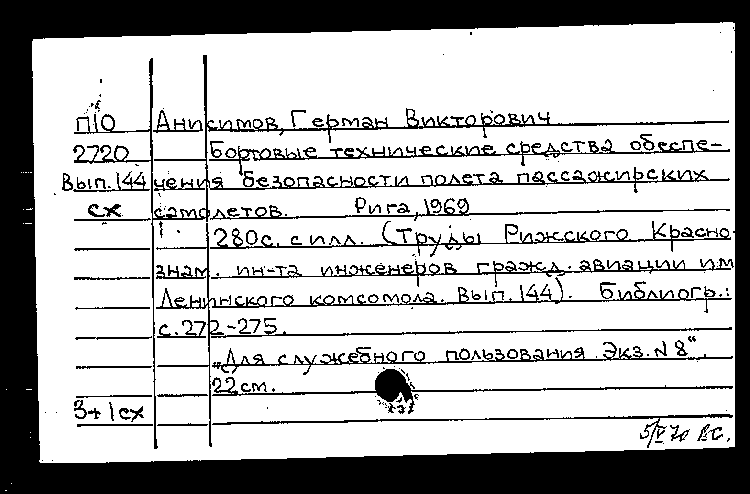 П10 Анисимов, Герман Викторович
2720 Бортовые технические средства обеспе-
Вып. 144 чения безопасности полета пассажирских
сх самолетов. Рига, 1969
280с. с илл. (Труды Рижского Красно-
знам. ин-та инженеров гражд. авиации им
Ленинского комсомола. Вып. 144). Библиогр.:
с. 272-275.
"Для служебного пользования. Экз. N 8".
22 см.
3+1сх
5/V 70 ВС.